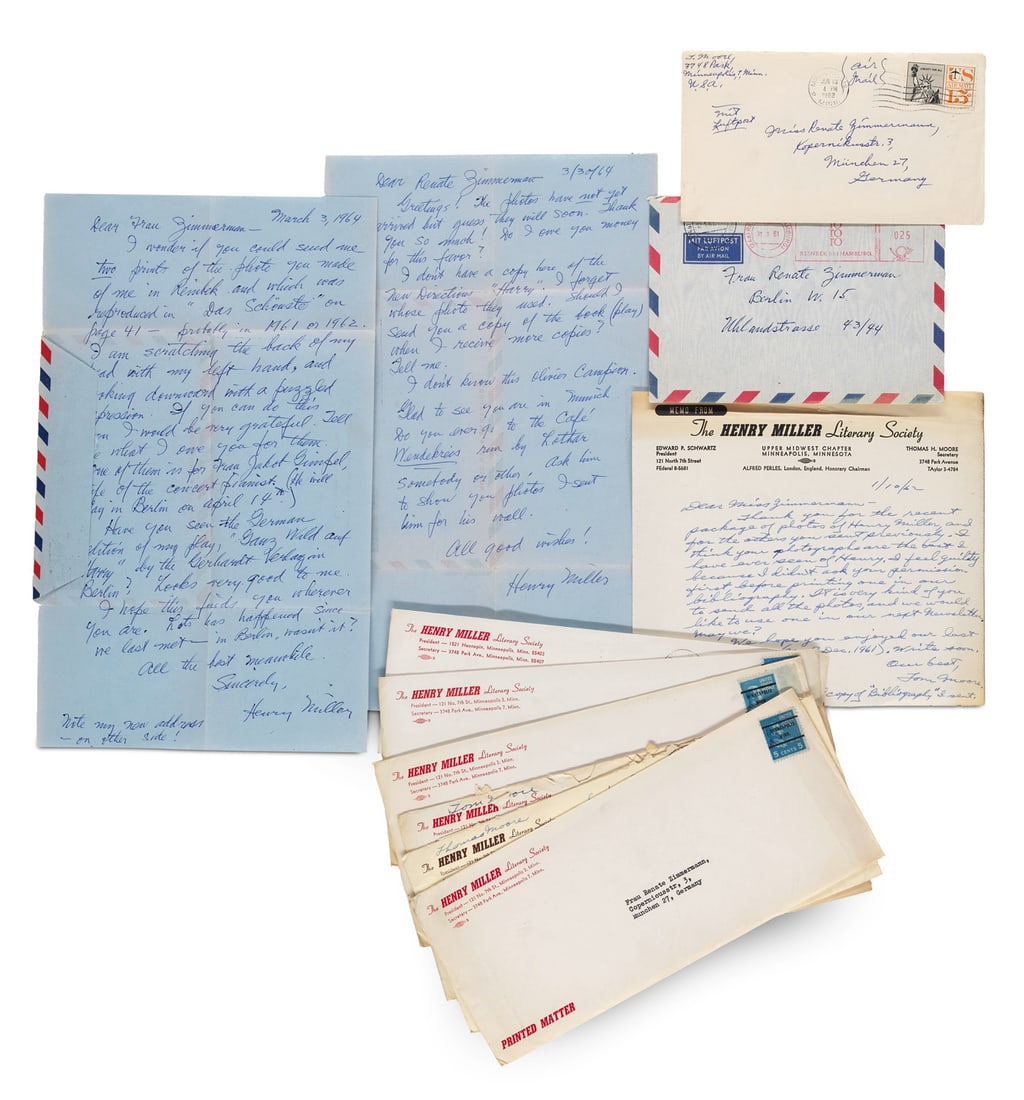 March 3, 1964
Dear Frau Zimmerman —
I wonder if you could send me
two prints of the photo you made
of me in Reinbek and which was
reproduced in "Das Schönste" on
page 41 — probably in 1961 or 1962.
I am scratching the back of my
ad with my left hand, and
oking downward with a puzzled
pression. If you can do this
I would be very grateful. Tell
e what I owe you for them.
ne of them is for Frau Jakob Gimpel,
fe of the concert pianist. (He will
ay in Berlin on April 14th)
Have you seen the German
dition of my play, "Ganz Wild auf
arry" by the Gerhardt Verlag in
Berlin? Looks very good to me.
I hope this finds you wherever
you are. Lots has happened since
we last met — in Berlin, wasn't it?
All the best meanwhile.
Sincerely,
Henry Miller
Note my new address
— on other side!
3/30/64
Dear Renate Zimmerman
Greetings! The photos have not yet
arrived but guess they will soon. Thank
you so much! Do I owe you money
for this favor?
I don't have a copy here of the
New Directions "Harry". I forget
whose photo they used. Should I
send you a copy of the book (play)
when I receive more copies?
Tell me.
I don't know this Olivier Campion.
Glad to see you are in Munich
Do you ever go to the Café
run by Lothar
somebody or other. Ask him
to show you photos I sent
him for his wall.
All good wishes!
Henry Miller
T. Moore,
3748 Park,
Minneapolis 7, Minn.
U.S.A.
4 PM
1962
MINN.
air
mail
mit
Luftpost
Miss Renate Zimmermann,
Kopernikusstr. 3,
München 27,
Germany
MIT LUFTPOST
PAR AVION
BY AIR MAIL
RO
RO
025
REINBEK BEI HAMBURG
Frau Renate Zimmerman
Berlin W. 15
Uhlandstrasse 43/44
MEMO FROM
The HENRY MILLER Literary Society
EDWARD P. SCHWARTZ
President
121 North 7th Street
FEderal 8-5681
UPPER MIDWEST CHAPTER
MINNEAPOLIS, MINNESOTA
THOMAS H. MOORE
Secretary
3748 Park Avenue
TAylor 3-4704
ALFRED PERLES, London, England, Honorary Chairman
1/10/62
Dear Miss Zimmermann —
Thank you for the recent
package of photos of Henry Miller, and
for the others you sent previously. I
think your photographs are the best I
have ever seen of Henry. I feel guilty
because I didn't ask your permission
for it before printing one in our
bibliography. It is very kind of you
to send all the photos, and we would
like to use one in our next Newsletter.
May we?
We hope you enjoyed our last
Dec. 1961). Write soon.
Our best,
Tom Moore
copy of "Bibliography" I sent.
The HENRY MILLER Literary Society
President — 1521 Hennepin, Minneapolis, Minn. 55403
Secretary — 3748 Park Ave., Minneapolis, Minn. 55407
The HENRY MILLER Literary Society
President — 121 No. 7th St., Minneapolis 3, Minn.
Secretary — 3748 Park Ave., Minneapolis 7, Minn.
The HENRY MILLER Literary Society
President — 121 No. 7th St., Minneapolis 3, Minn.
Secretary — 3748 Park Ave., Minneapolis 7, Minn.
Tom Moore
The HENRY MILLER Literary Society
President — 121 No. 7th St., Minneapolis 3, Minn.
Thomas Moore
The HENRY MILLER Literary Society
The HENRY MILLER Literary Society
President — 121 No. 7th St., Minneapolis 3, Minn.
Secretary — 3748 Park Ave., Minneapolis 7, Minn.
5 CENTS 5
Frau Renate Zimmermann,
Copernicusstr, 3,
Munchen 27, Germany
PRINTED MATTER